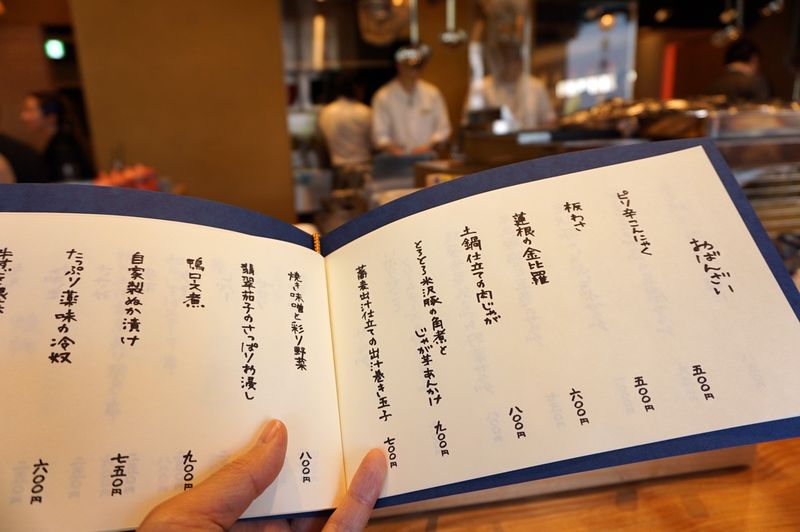 おばんざい
ピリ辛こんにゃく 五〇〇円
板わさ 五〇〇円
蓮根の金比羅 六〇〇円
土鍋仕立ての肉じゃが 八〇〇円
とろとろ米沢豚の角煮と
じゃが芋あんかけ 九〇〇円
蕎麦出汁仕立ての出汁巻き玉子 七〇〇円
焼き味噌と彩り野菜 八〇〇円
翡翠茄子のさっぱりお浸し
鴨ロース煮 九〇〇円
自家製ぬか漬け 七五〇円
たっぷり薬味の冷奴 六〇〇円